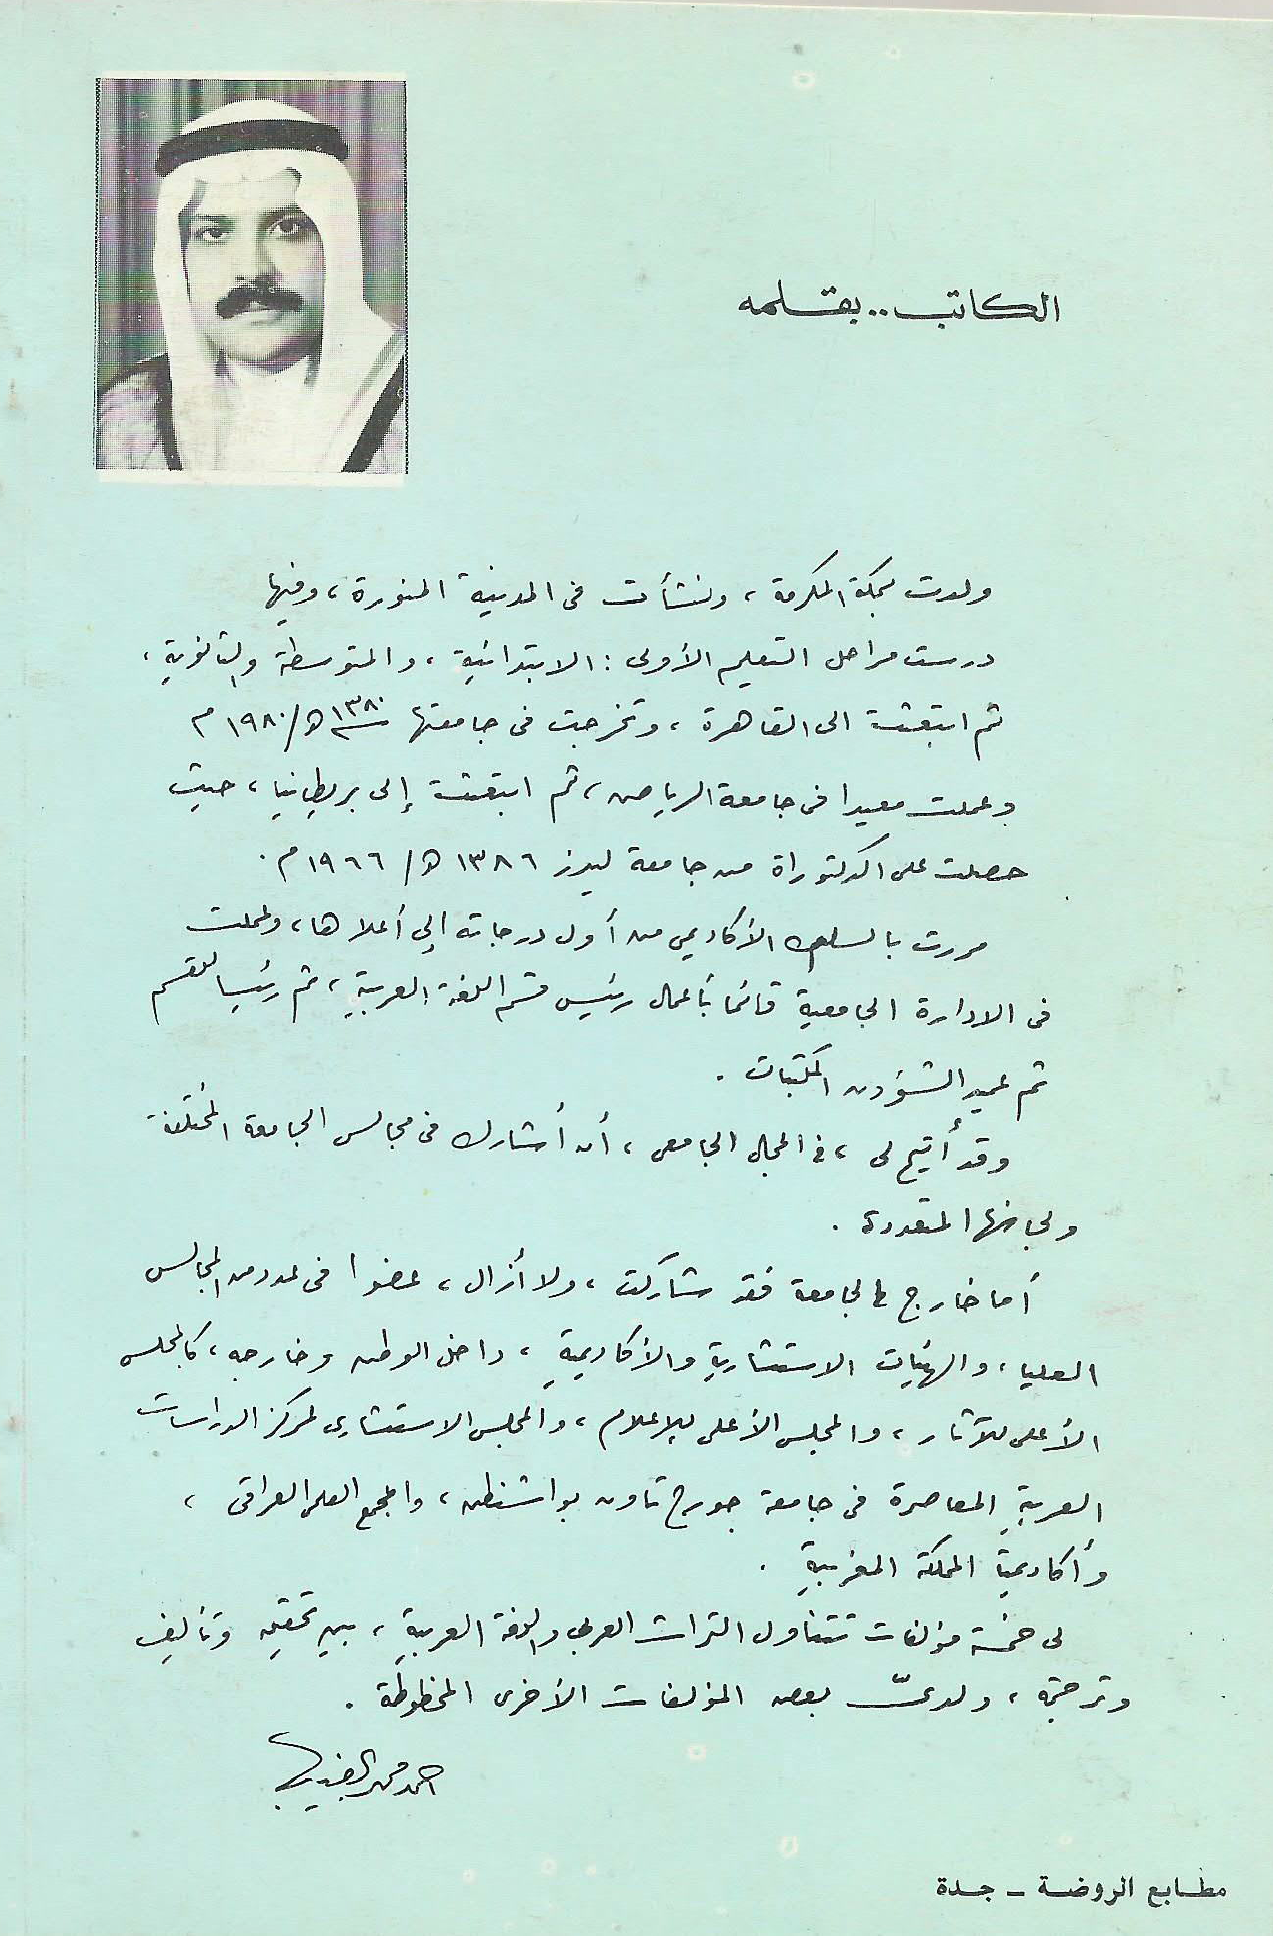 الكاتب.. بقلمه
ولدت بمكة المكرمة، ونشأت فى المدينة المنورة، وفيها
درست مراحل التعليم الأولى: الابتدائية، والمتوسطة والثانوية،
ثم ابتعثت الى القاهرة، وتخرجت فى جامعتها ١٣٨٠ه/ ١٩٨٠م
وعملت معيدا فى جامعة الرياض، ثم ابتعثت إلى بريطانيا، حيث
حصلت على الدكتوراة من جامعة ليدز ١٣٨٦ه/ ١٩٦٦م.
مررت بالسلك الأكاديمي من أول درجاته إلى أعلاها، وعملت
فى الادارة الجامعية قائما بأعمال رئيس قسم اللغة العربية، ثم رئيسا للقسم
ثم عميد الشؤون المكتبات.
وقد أُتيح لى، في المجال الجامعى، أن أشارك فى مجالس الجامعة المختلفة
ولجانها المتعددة.
أما خارج الجامعة فقد شاركت، ولا أزال، عضوا فى عدد من المجالس
العليا، والهيئات الاستشارية والأكاديمية، داخل الوطن وخارجه، كالمجلس
الأعلى للآثار، والمجلس الأعلى للإعلام، والمجلس الاستشارى لمركز الدراسات
العربية المعاصرة فى جامعة جورج تاون بواشنطن، والمجمع العلمى العراقى،
وأكاديمية المملكة المغربية.
لى خمسة مؤلفات تتناول التراث العربي واللغة العربية، بين تحقيق وتأليف
وترجمة، ولدىّ بعض المؤلفات الأخرى المخطوطة.
احمد محمد الضبيب
مطابع الروضة - جدة